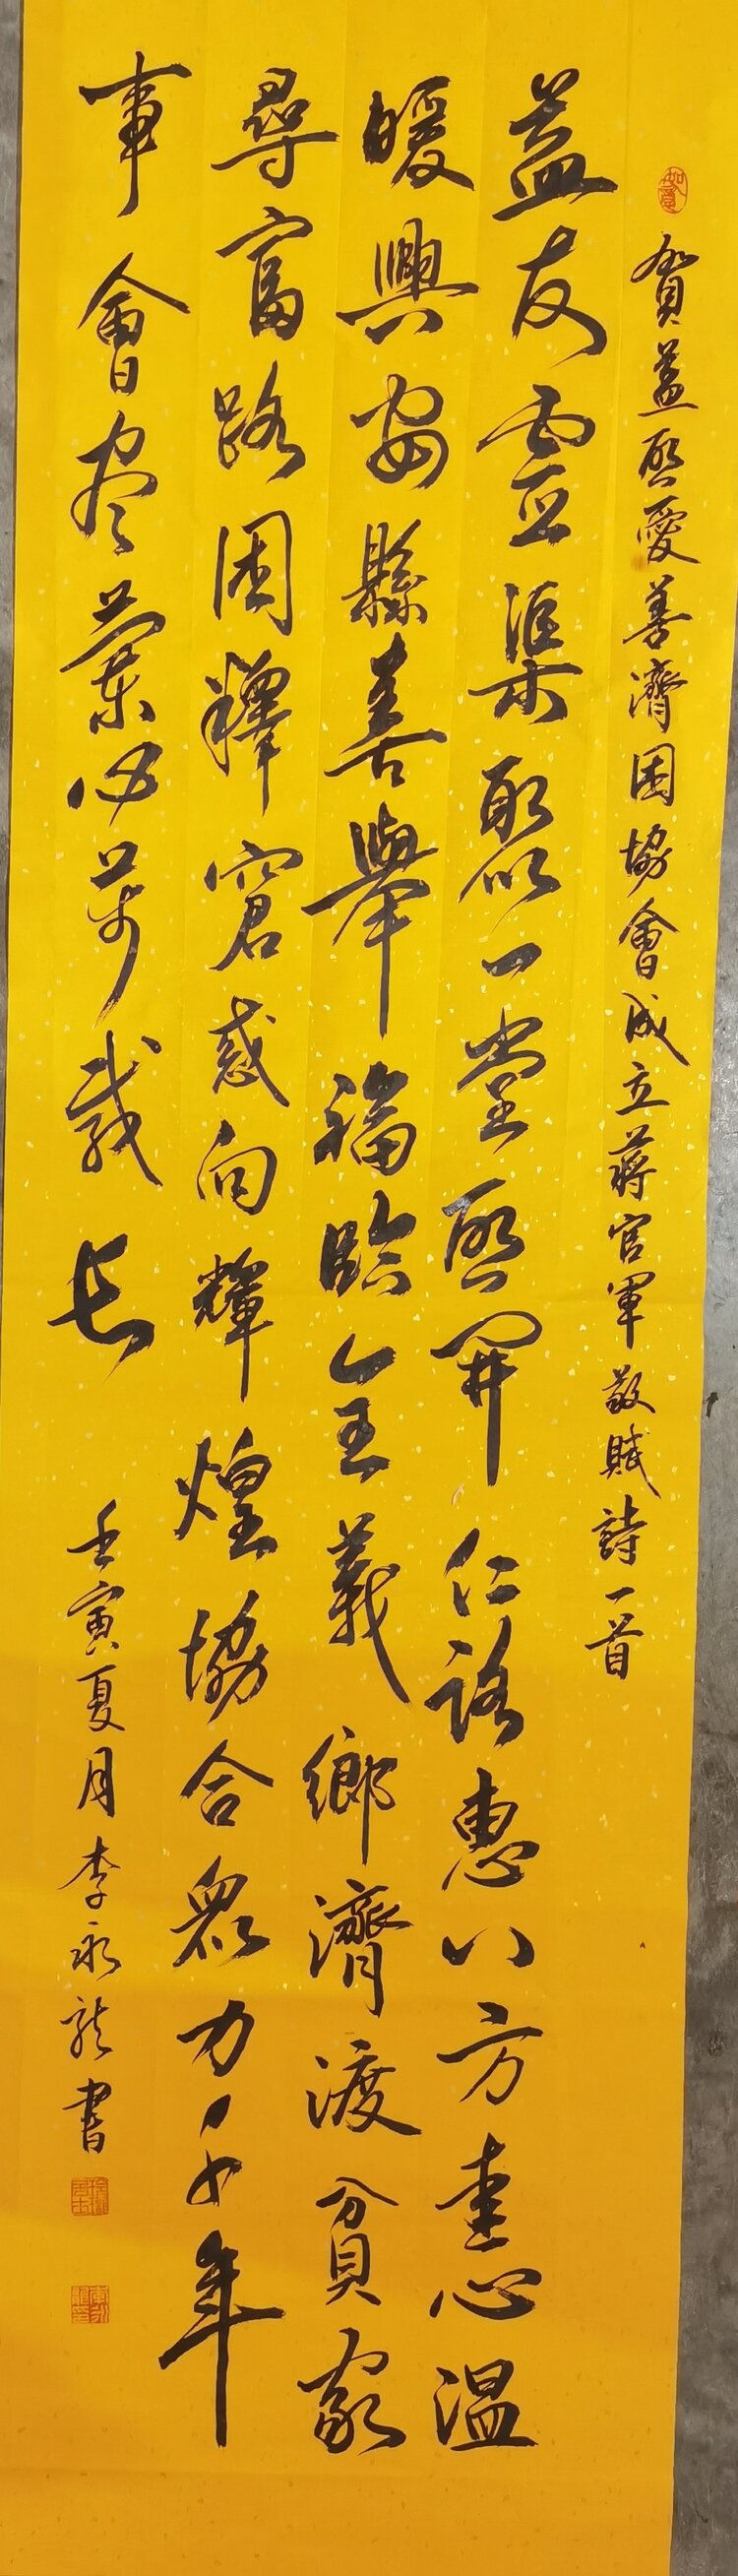 如意
賀益啟愛善濟困協會成立蔣官軍敬賦詩一首
益友靈渠聚一堂啟開仁路惠八方愛心温
暖興安縣善舉福臨全義鄉濟渡貧家
尋富路困釋窘惑向輝煌協合眾力千年
事會尽蘭心萬載长
壬寅夏月李永龍書